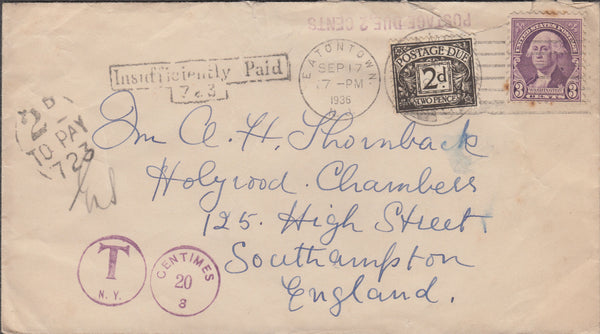 POSTAGE DUE 2 CENTS
UNITED STATES POSTAGE
3 WASHINGTON 3
CENTS
POSTAGE DUE
2d.
TWO PENCE
EATONTOWN
SEP 17
7-PM
1936
Insufficiently Paid
723
2D
TO PAY
723
A. H. Thornback
Holyrood Chambers
125. High Street
Southampton
England.
T
N.Y.
CENTIMES
20